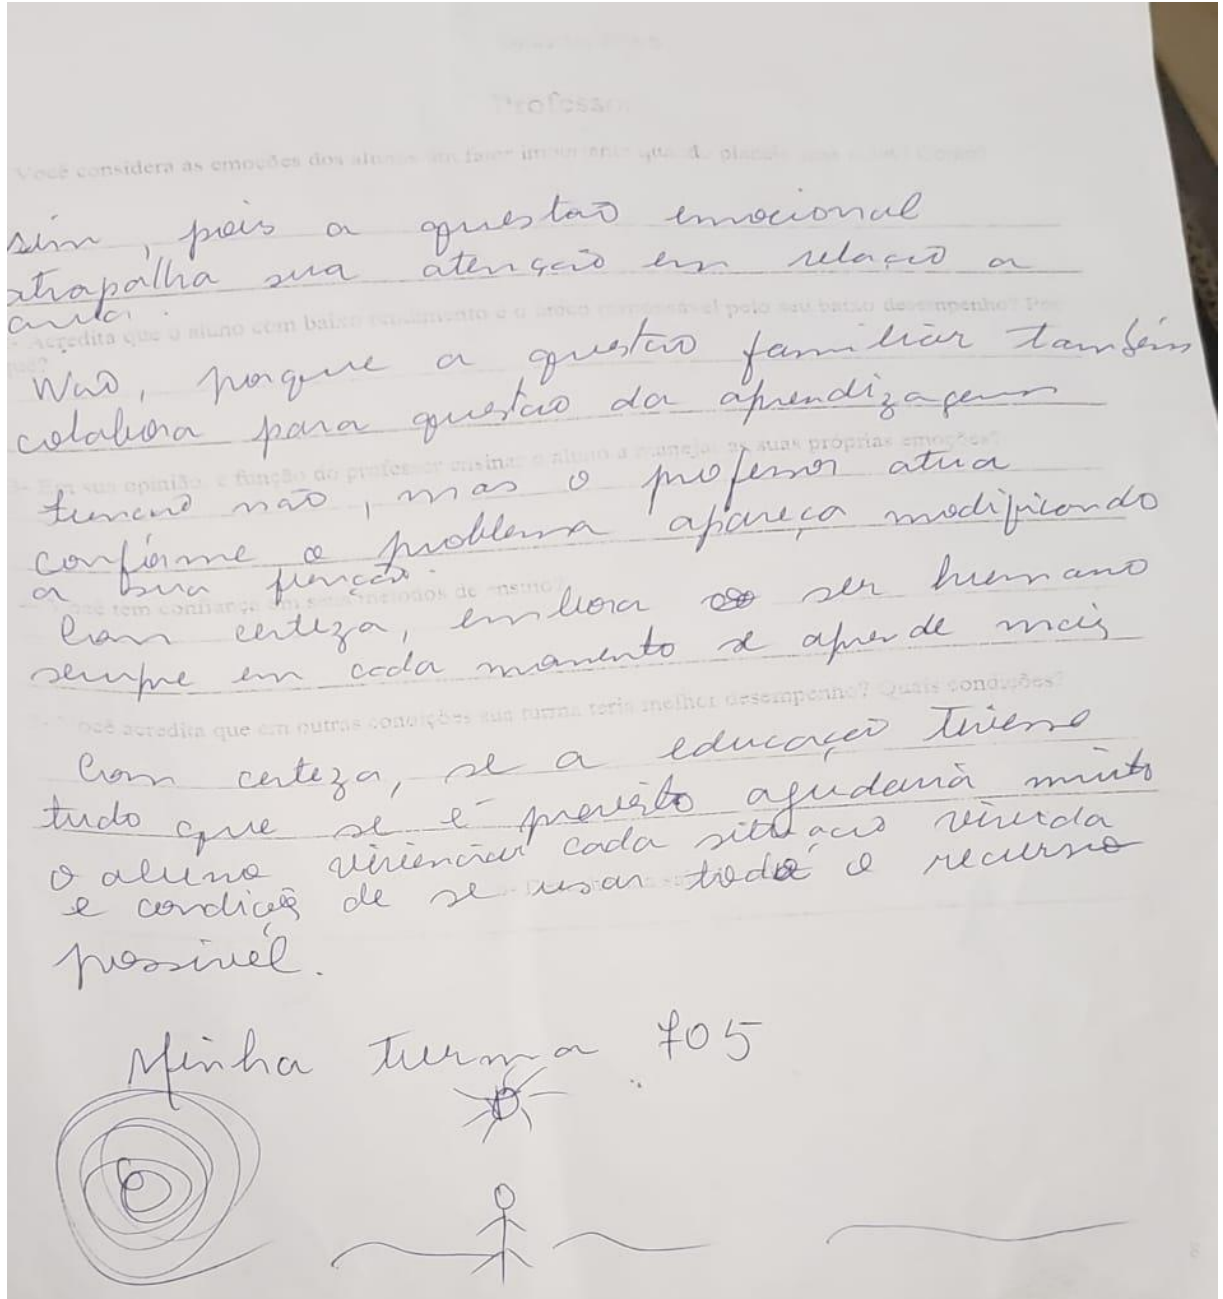 Professor
Você considera as emoções dos alunos um fator importante quando
sim, pois a questão emocional
atrapalha sua atenção em relação a
aula.
- Acredita que o aluno com baixo rendimento é o único responsável pelo seu baixo desempenho? Por
quê?
Não, porque a questão familiar também
colabora para questão da aprendizagem
- Em sua opinião, é função do professor ensinar o aluno a manejar as suas próprias emoções?
não, mas o professor atua
conforme o problema apareça modificando
a sua função.
Você tem confiança em seus métodos de ensino?
Com certeza, embora ser humano
sempre em cada momento se aprende mais
Você acredita que em outras condições sua turma teria melhor desempenho? Quais condições?
Com certeza, se a educação tivesse
tudo que se é previsto ajudaria muito
o aluno vivenciar cada situação vivida
e condições de se usar todo o recurso
possivél.
Minha turma 705
8